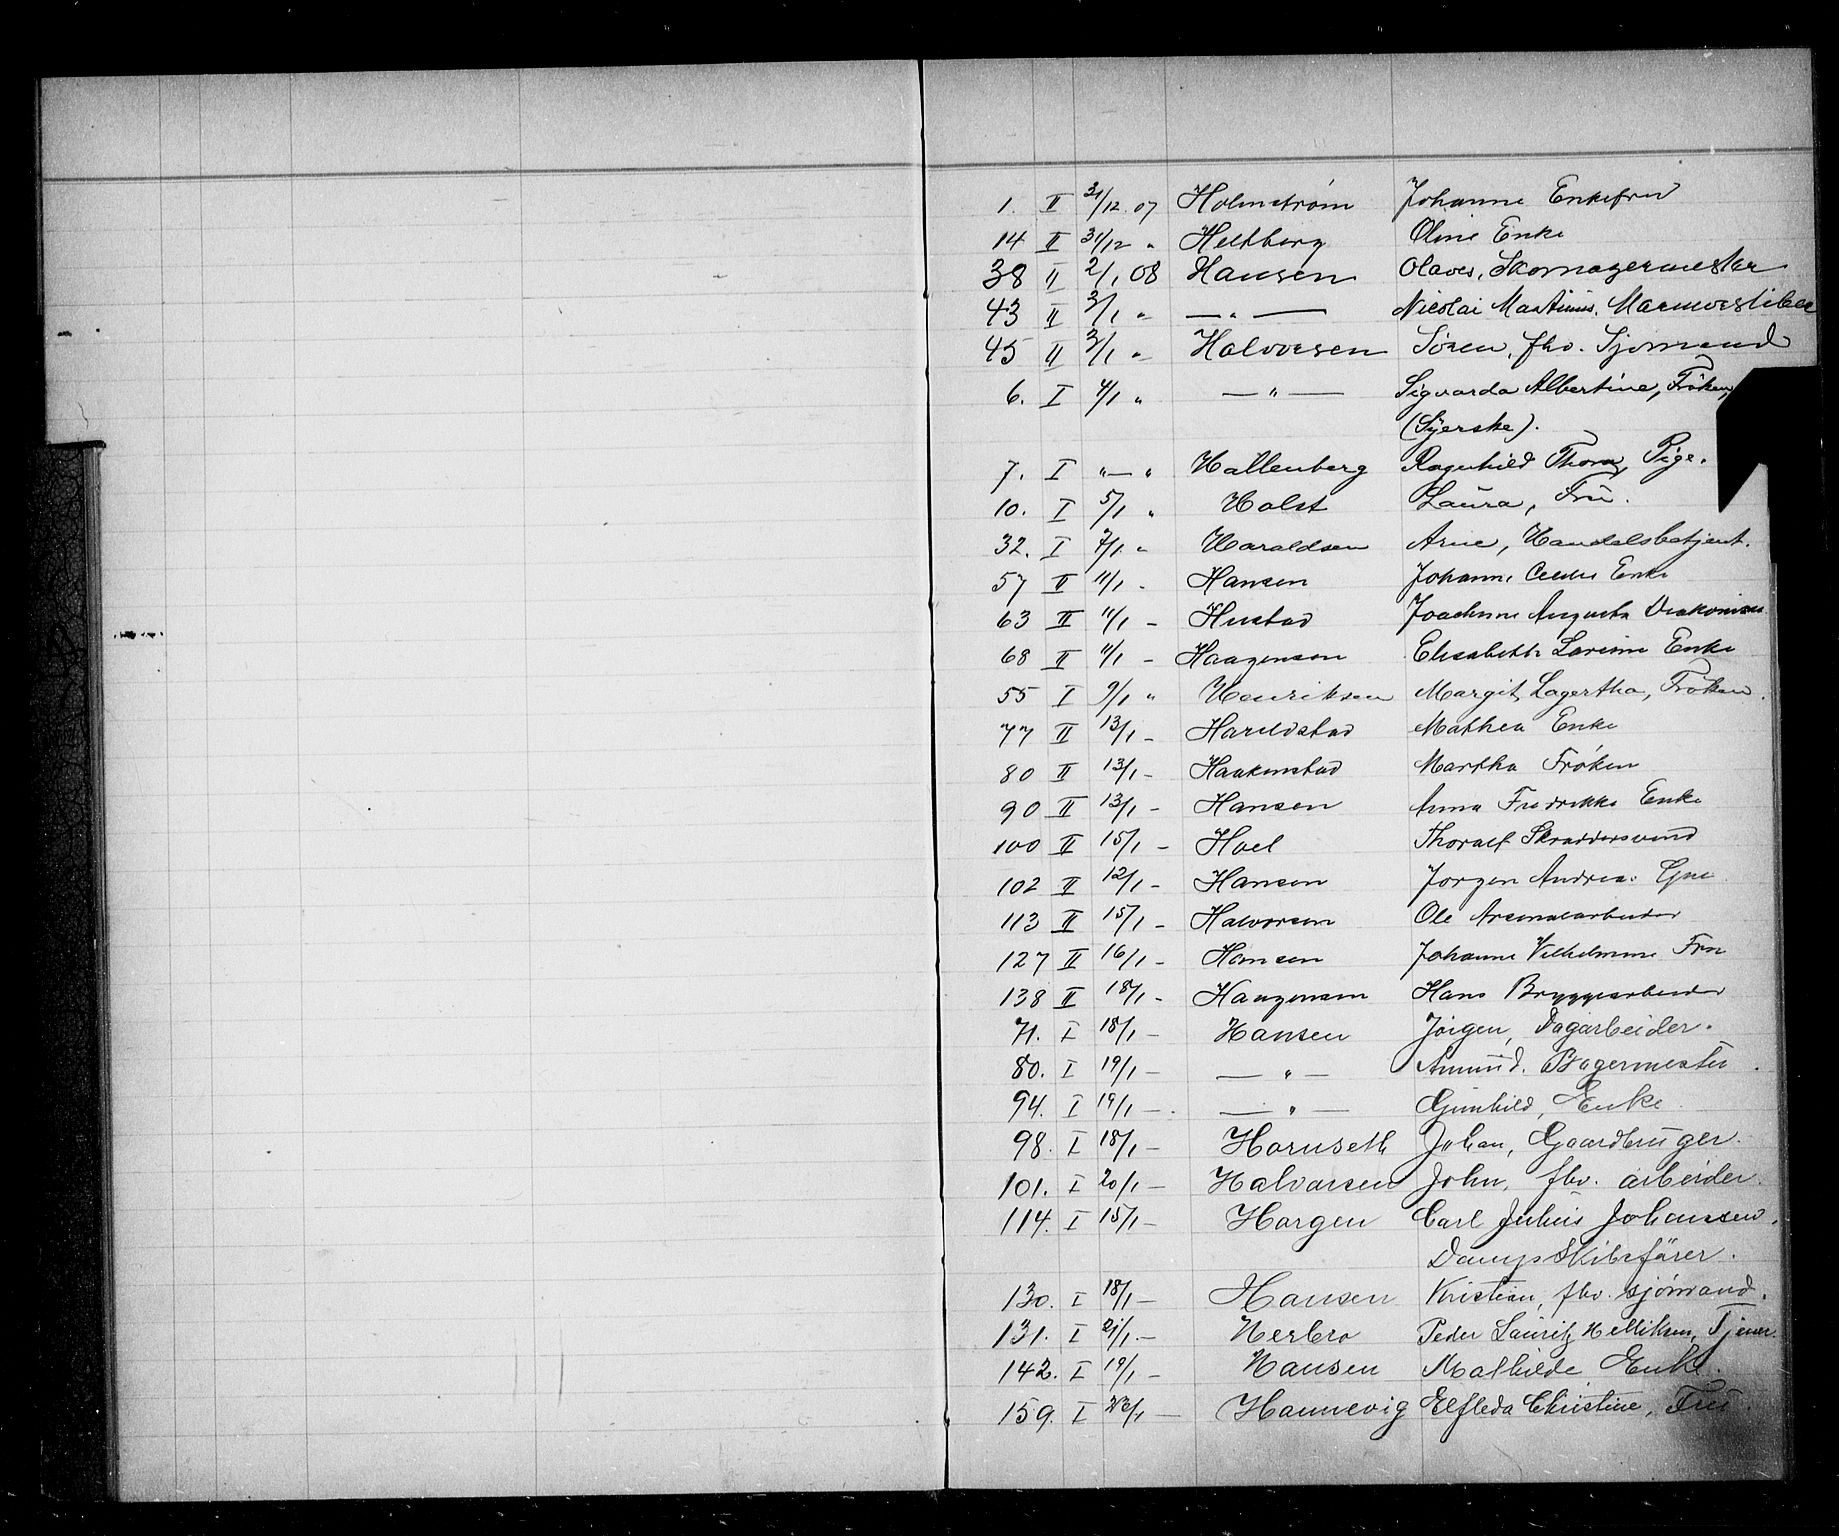 1. II 31/12 07 Holmstrøm Johanne Enkefru
14 II 31/12 " Heltberg Oline Enke
38 II 2/1 08 Hansen Olaves, Skomagermester
43 II 3/1 " —"— Nicolai Martinius, Marmorsliber
45 II 3/1 " Halvorsen Søren, fhv. Sjømand
6. I 4/1 " —"— Sigvarda Albertine, Frøken,
(Syerske).
7. I "—" Hallenberg Ragnhild Thora, Pige.
10. I 5/1 " Holst Laura, Fru.
32. I 7/1 " Haraldsen Arne, Handelsbetjent.
57 II 11/1 - Hansen Johanne Enke
63 II 11/1 - Hustad Joachime Augusta Diakonisse
68 II 11/1 - Haagensen Elisabeth Lovise Enke
55 I 9/1 " Henriksen Margit Lagertha, Frøken.
77 II 13/1 - Hareldstad Mathea Enke
80 II 13/1 - Haakenstad Martha Frøken
90 II 13/1 - Hansen Anna Fredrikke Enke
100 II 15/1 - Hoel Thoralf Skræddersvend
102 II 12/1 - Hansen Jørgen Andreas
113 II 15/1 - Halvorsen Ole Arsenalarbeider
127 II 16/1 - Hansen Johanne Vilhelmine Fru
138 II 18/1 - Haagensen Hans Bryggearbeider
71. I 18/1 - Hansen Jörgen, Dagarbeider.
80. I 19/1 — —"— Amund. Bagermester.
94. I 19/1 —. —"— Gunhild, Enke.
98. I 18/1 — Hornseth Johan, Gaardbruger.
101. I 20/1 — Halvorsen John, fhv. arbeider.
114. I 15/1 — Horgen Carl Julius Johansen,
Dampskibsfører.
130. I 18/1 — Hansen Kristian, fhv. sjömand.
131. I 21/1 — Herbro Peder Lauritz Helliksen, Tjener.
142. I 19/1 — Hansen Mathilde Enke.
159. I 23/1 — Hannevig Elfleda Christine, Fru.